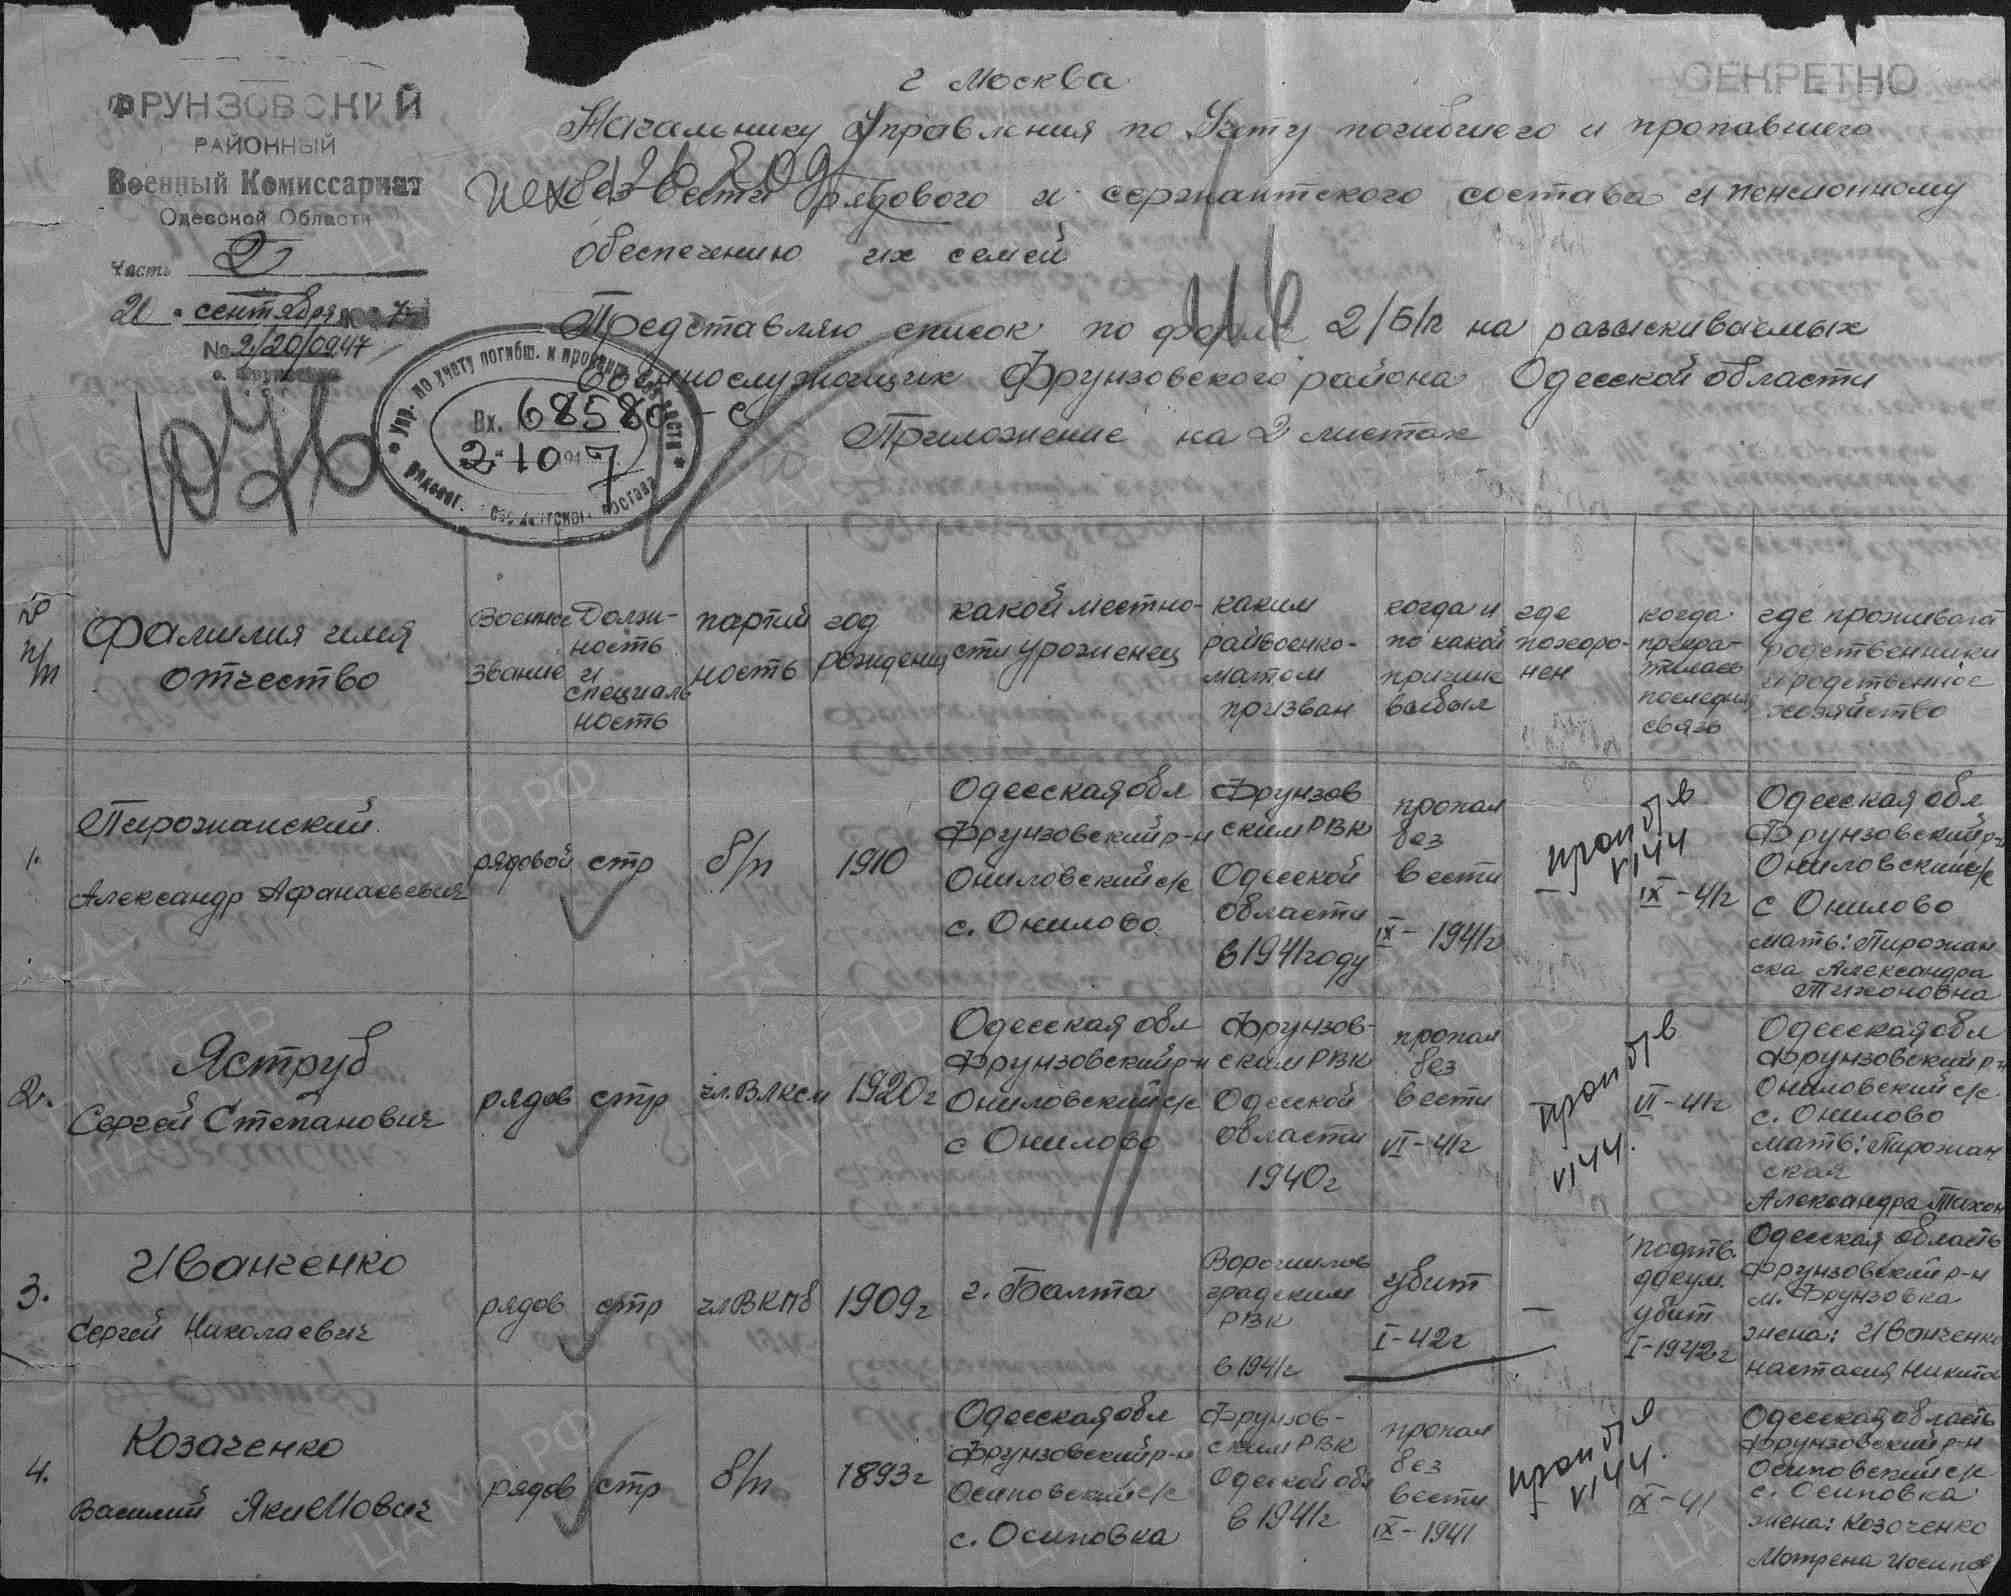 СЕКРЕТНО
ФРУНЗОВСКИЙ
РАЙОННЫЙ
Военный Комиссариат
Одесской Области
Часть 2
21 " сентября 7
№ 2/20/0947
1076
г Москва
Начальнику Управления по Учету погибшего и пропавшего
без вести рядового и сержантского состава и пенсионному
обеспечению их семей
Представляю список по форме 2/Б/Н на разыскиваемых
военнослужащих Фрунзовского района Одесской области
Приложение на 2 листах
Упр. по учету погибш. и
Вх. 68580-с
2" 10 194 7
рядовог. состава
№ п/п
Фамилия имя отчество
Военное звание
Долж-
ность
и
специаль
ность
партий
ность
год
рождения
какой местно-
сти уроженец
каким
райвоенко-
матом
призван
когда и
по какой
причине
выбыл
где
похоро-
нен
когда
прекра-
тилась
последняя
связь
где проживают
родственники
и родственное
хозяйство
1.
Пирожанский
Александр Афанасьевич
рядовой
стр
б/п
1910
Одесская обл
Фрунзовский р-н
Ониловский с/с
с. Онилово
Фрунзов
ским РВК
Одесской
области
в 1941 году
пропал
без
вести
IX - 1941г
–
проп б/в
VI 44
IX - 41г
Одесская обл
Фрунзовский р-н
Ониловский с/с
с Онилово
мать: Пирожан
ска Александра
Тихоновна
2.
Яструб
Сергей Степанович
рядов
стр
чл. ВЛКСМ
1920г
Одесская обл
Фрунзовский р-н
Ониловский с/с
с Онилово
Фрунзов-
ским РВК
Одесской
области
1940г
пропал
без
вести
VI - 41г
проп б/в
VI 44.
VI - 41г
Одесская обл
Фрунзовский р-н
Ониловский с/с
с. Онилово
мать: Пирожан
ская
Александра Тихон
3.
Иванченко
Сергей Николаевич
рядов
стр
чл ВКПб
1909г
г. Балта
Ворошилов
градским
РВК
в 1941г
убит
I - 42г
–
подтв.
докум.
убит
I - 1942г
Одесская область
Фрунзовский р-н
м. Фрунзовка
жена: Иванченко
Настасия Никита
4.
Козаченко
Василий Якимович
рядов
стр
б/п
1893г
Одесская обл
Фрунзовский р-н
Осиповский с/с
с. Осиповка
Фрунзов-
ским РВК
Одеской обл
в 1941г
пропал
без
вести
IX - 1941
–
проп б/в
VI 44.
IX - 41
Одесская область
Фрунзовский р-н
Осиповский с/с
с. Осиповка
жена: Козаченко
Мотрена Иосипов